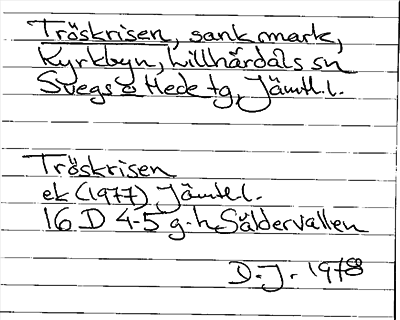 Tröskrisen, sank mark,
Kyrkbyn, Lillhärdals sn
Svegs o Hede tg, Jämtl. l.
Tröskrisen
ek (1977) Jämtl. l.
16 D 4-5 g-h Såldervallen
D. J. 1978